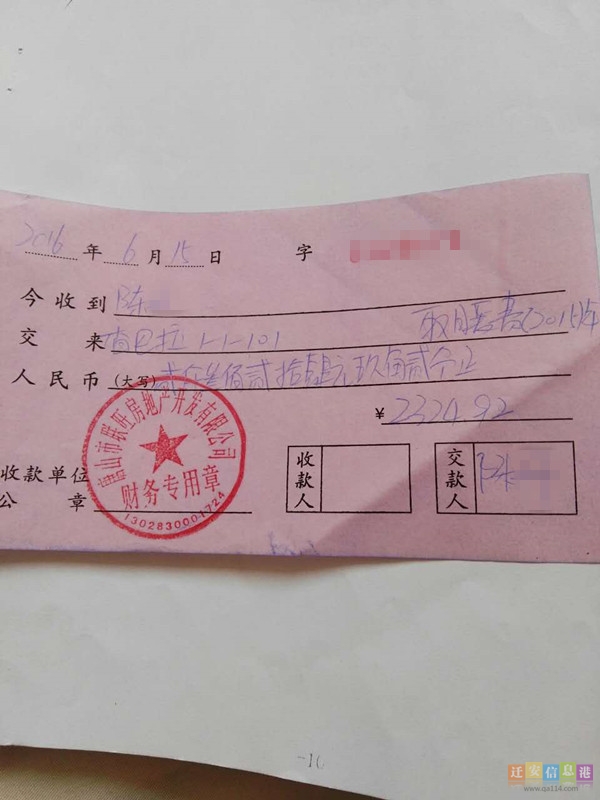 2016年6月15日 字
今收到 陈
交来 香巴拉 1-1-101 取暖费(2015)年
人民币(大写) 贰仟叁佰贰拾肆元玖角贰分正
¥ 2324.92
唐山市联旺房地产开发有限公司
财务专用章
1302830001724
收款单位
公章
收款人
交款人 陈
-10
迁安信息港
www.qa114.com